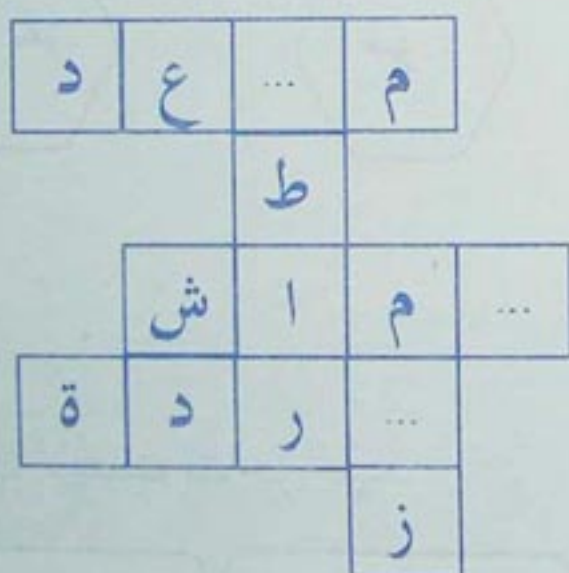 م ... ع د
ط
... م ا ش
... ر د ة
ز